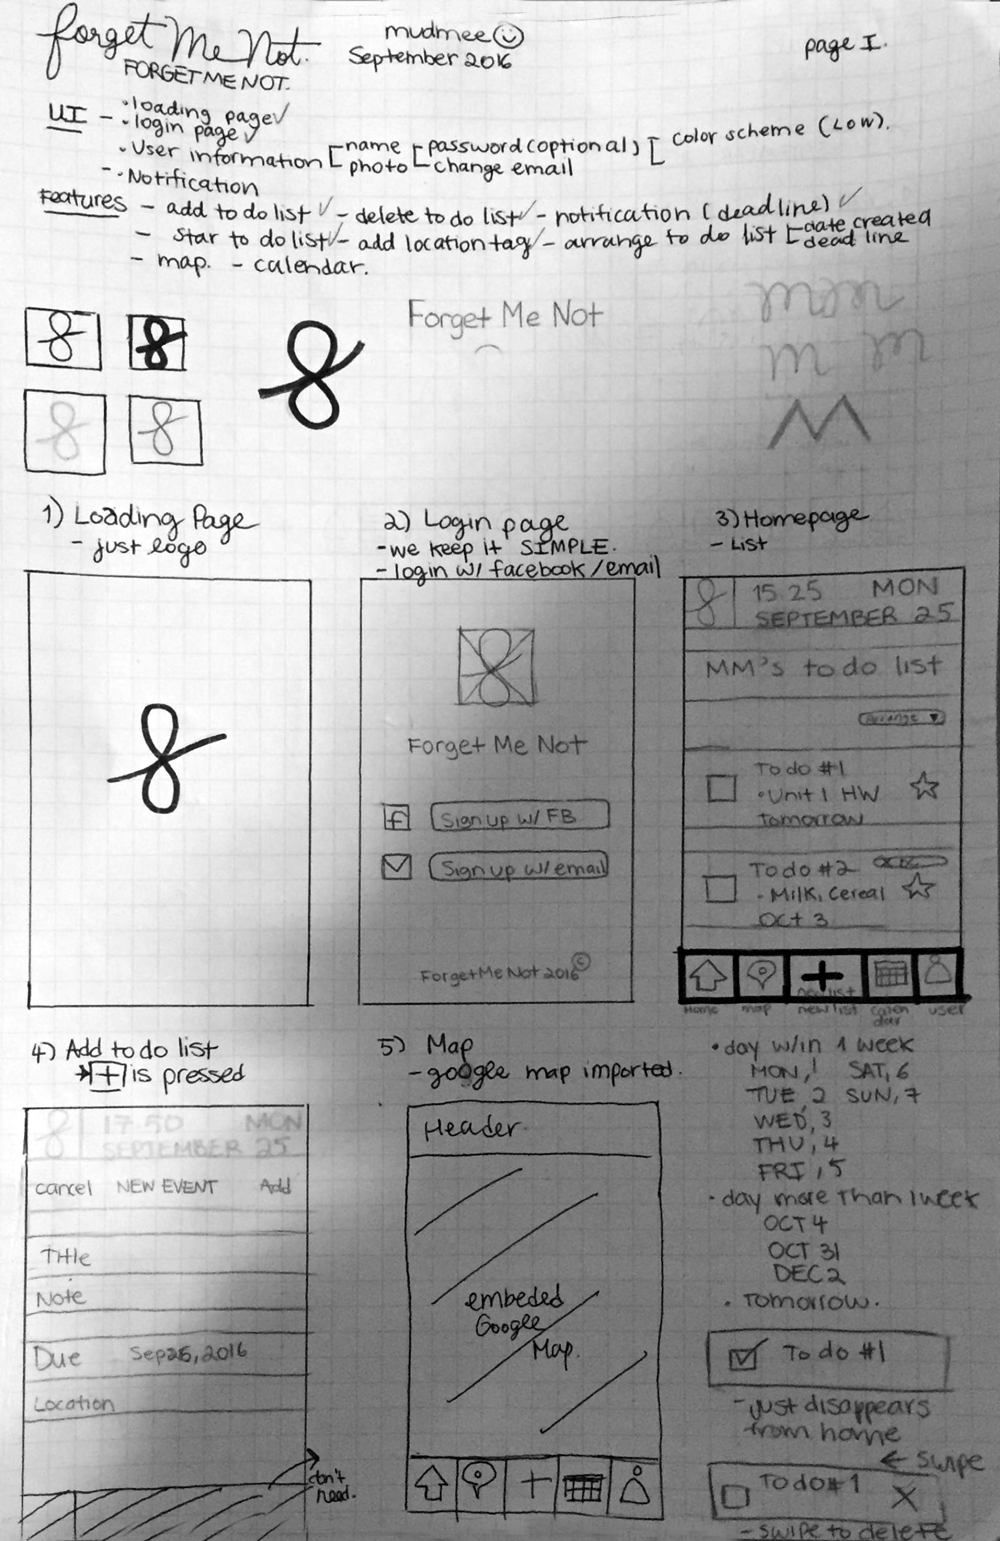 forget Me Not.
FORGET ME NOT.
mudmee
September 2016
page I.
UI - • loading page ✓
• login page ✓
• User information [ name [ password (optional) [ color scheme (LOW).
photo [ change email
- • Notification
Features - add to do list ✓ - delete to do list ✓ - notification (deadline) ✓
- star to do list ✓ - add location tag ✓ - arrange to do list [ date created
dead line
- map. - calendar.
8
8
8
8
8
Forget Me Not
1) Loading Page
- just logo
8
2) Login page
- we keep it SIMPLE.
- login w/ facebook/email
8
Forget Me Not
f Sign up w/ FB
Sign up w/ email
Forget Me Not 2016 ©
3) Homepage
- List
8 15 25 MON
SEPTEMBER 25
MM's to do list
Arrange ▼
To do #1
• Unit 1 HW
Tomorrow
To do #2
- Milk, Cereal
Oct 3
new list
Home map new list calen user
dar
4) Add to do list
→ + is pressed
8 17 50 MON
SEPTEMBER 25
cancel NEW EVENT Add
Title
Note
Due Sep 25, 2016
Location
don't
need.
5) Map
- google map imported.
Header
embeded
Google
Map.
• day w/in 1 week
MON, 1 SAT, 6
TUE, 2 SUN, 7
WED, 3
THU, 4
FRI, 5
• day more than 1 week
OCT 4
OCT 31
DEC 2
• Tomorrow.
To do #1
- just disappears
from home
← swipe
To do #1 X
- swipe to delete